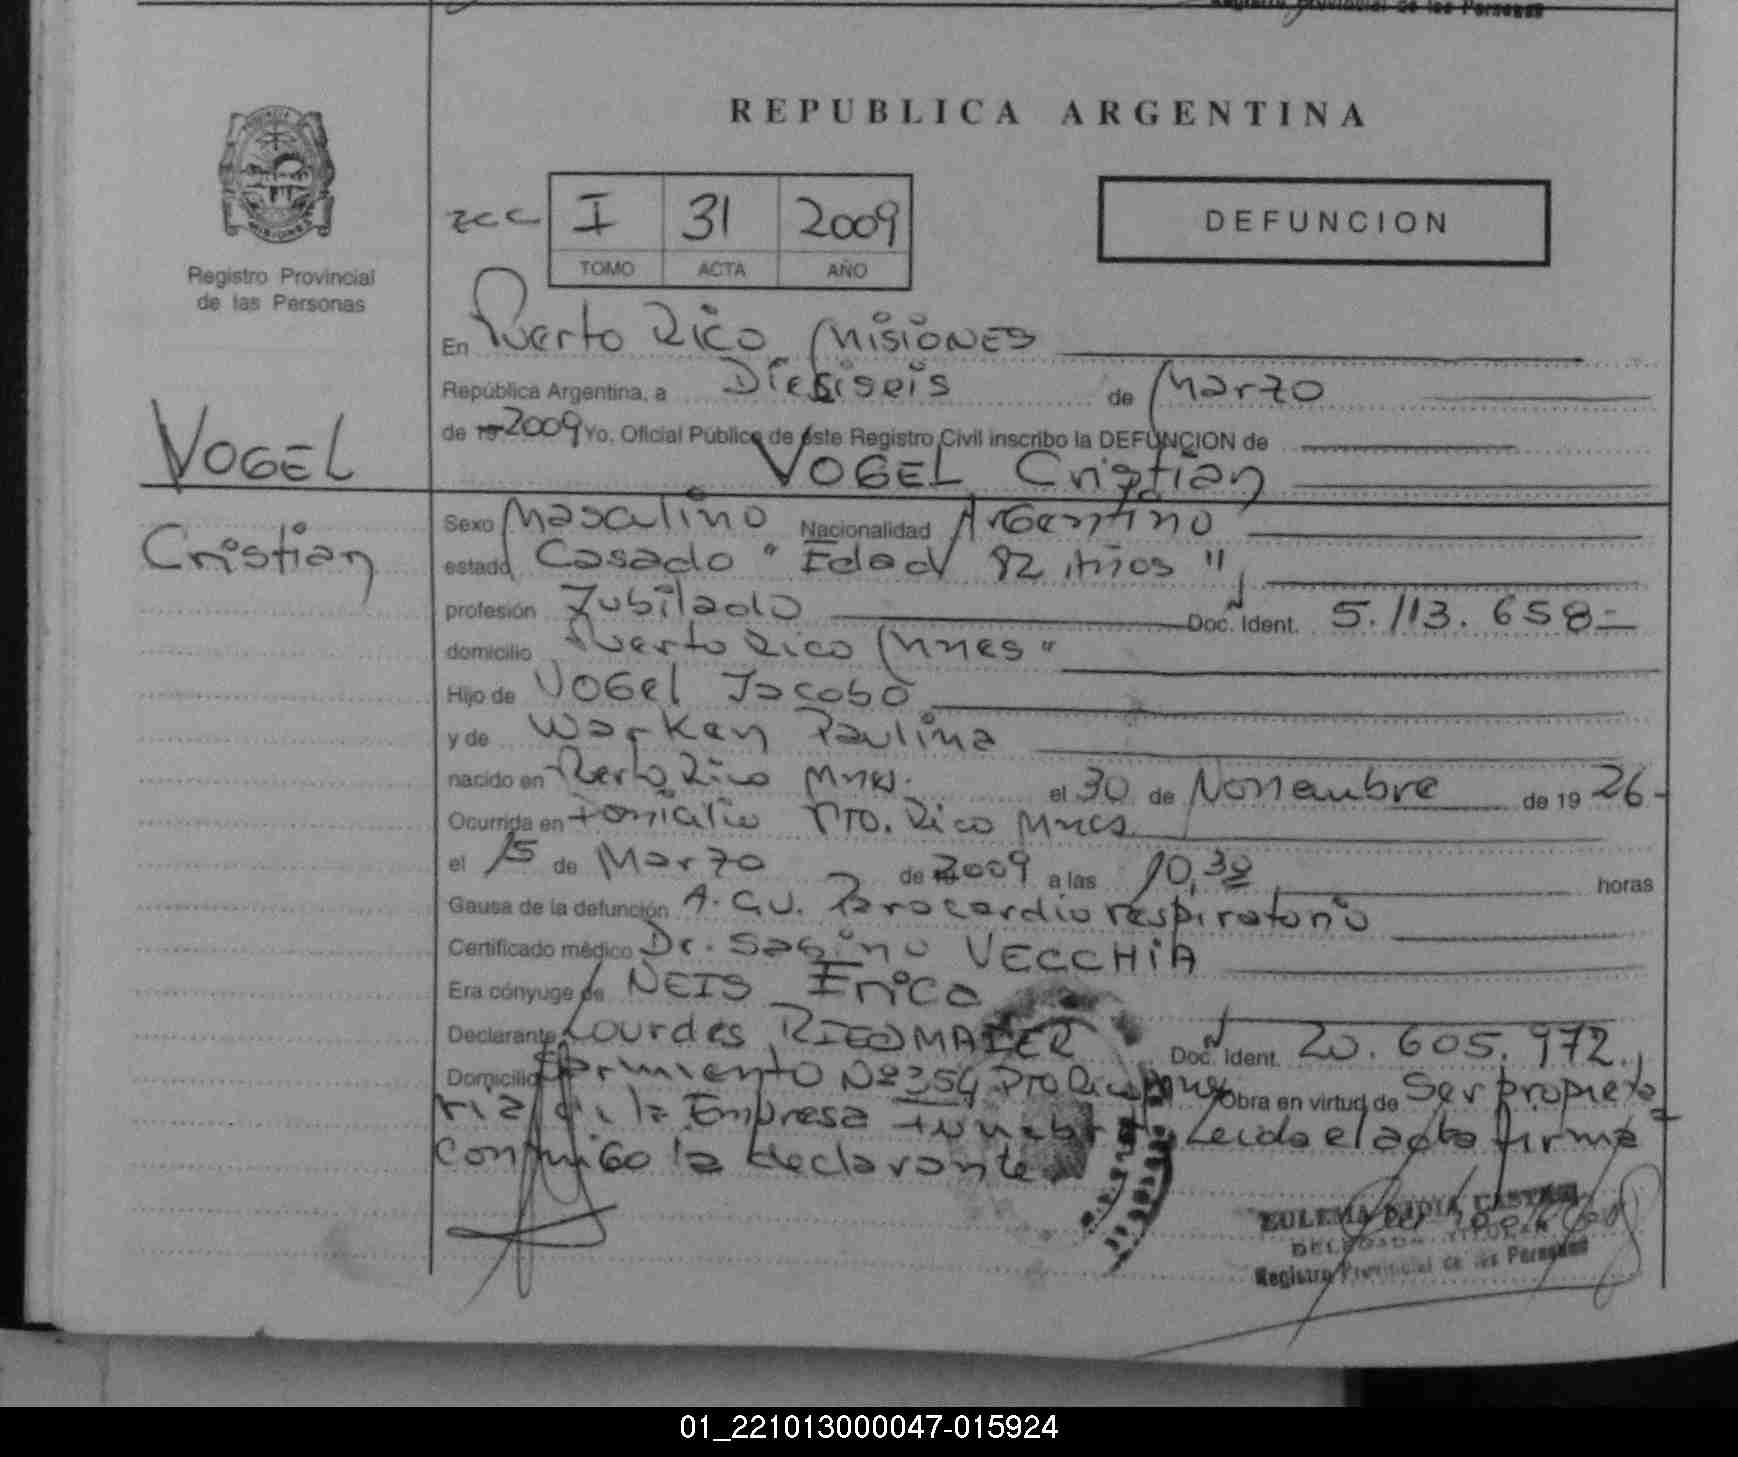 Registro Provincial de las Personas
REPUBLICA ARGENTINA
I 31 2009
TOMO ACTA AÑO
DEFUNCION
Registro Provincial
de las Personas
VOGEL
Cristian
En Puerto Rico Misiones
República Argentina, a Dieciseis de Marzo
de 19 2009 Yo, Oficial Público de este Registro Civil inscribo la DEFUNCION de
VOGEL Cristian
Sexo Masculino Nacionalidad Argentino
estado Casado "Edad 82 Años"
profesión Jubilado Doc. Ident. 5.113.658
domicilio Puerto Rico Mnes"
Hijo de Vogel Jacobo
y de Warken Paulina
nacido en Puerto Rico Mnes. el 30 de Noviembre de 19 26
Ocurrida en Domicilio Pto. Rico Mnes
el 15 de Marzo de 2009 a las 10,30 horas
Causa de la defunción A.C.V. Parocardiorespiratorio
Certificado médico Dr. Sabino VECCHIA
Era cónyuge de NEIS Erica
Declarante Lourdes Doc. Ident. 20.605.972
Domicilio Nº 354 Pto Rico Mnes Obra en virtud de Ser propieta
ria de la Empresa Funebre Leida el acta firma
conmigo la declarante
EULEMIA CASTRO
DELEGADA TITULAR
Registro Provincial de las Personas
01_221013000047-015924